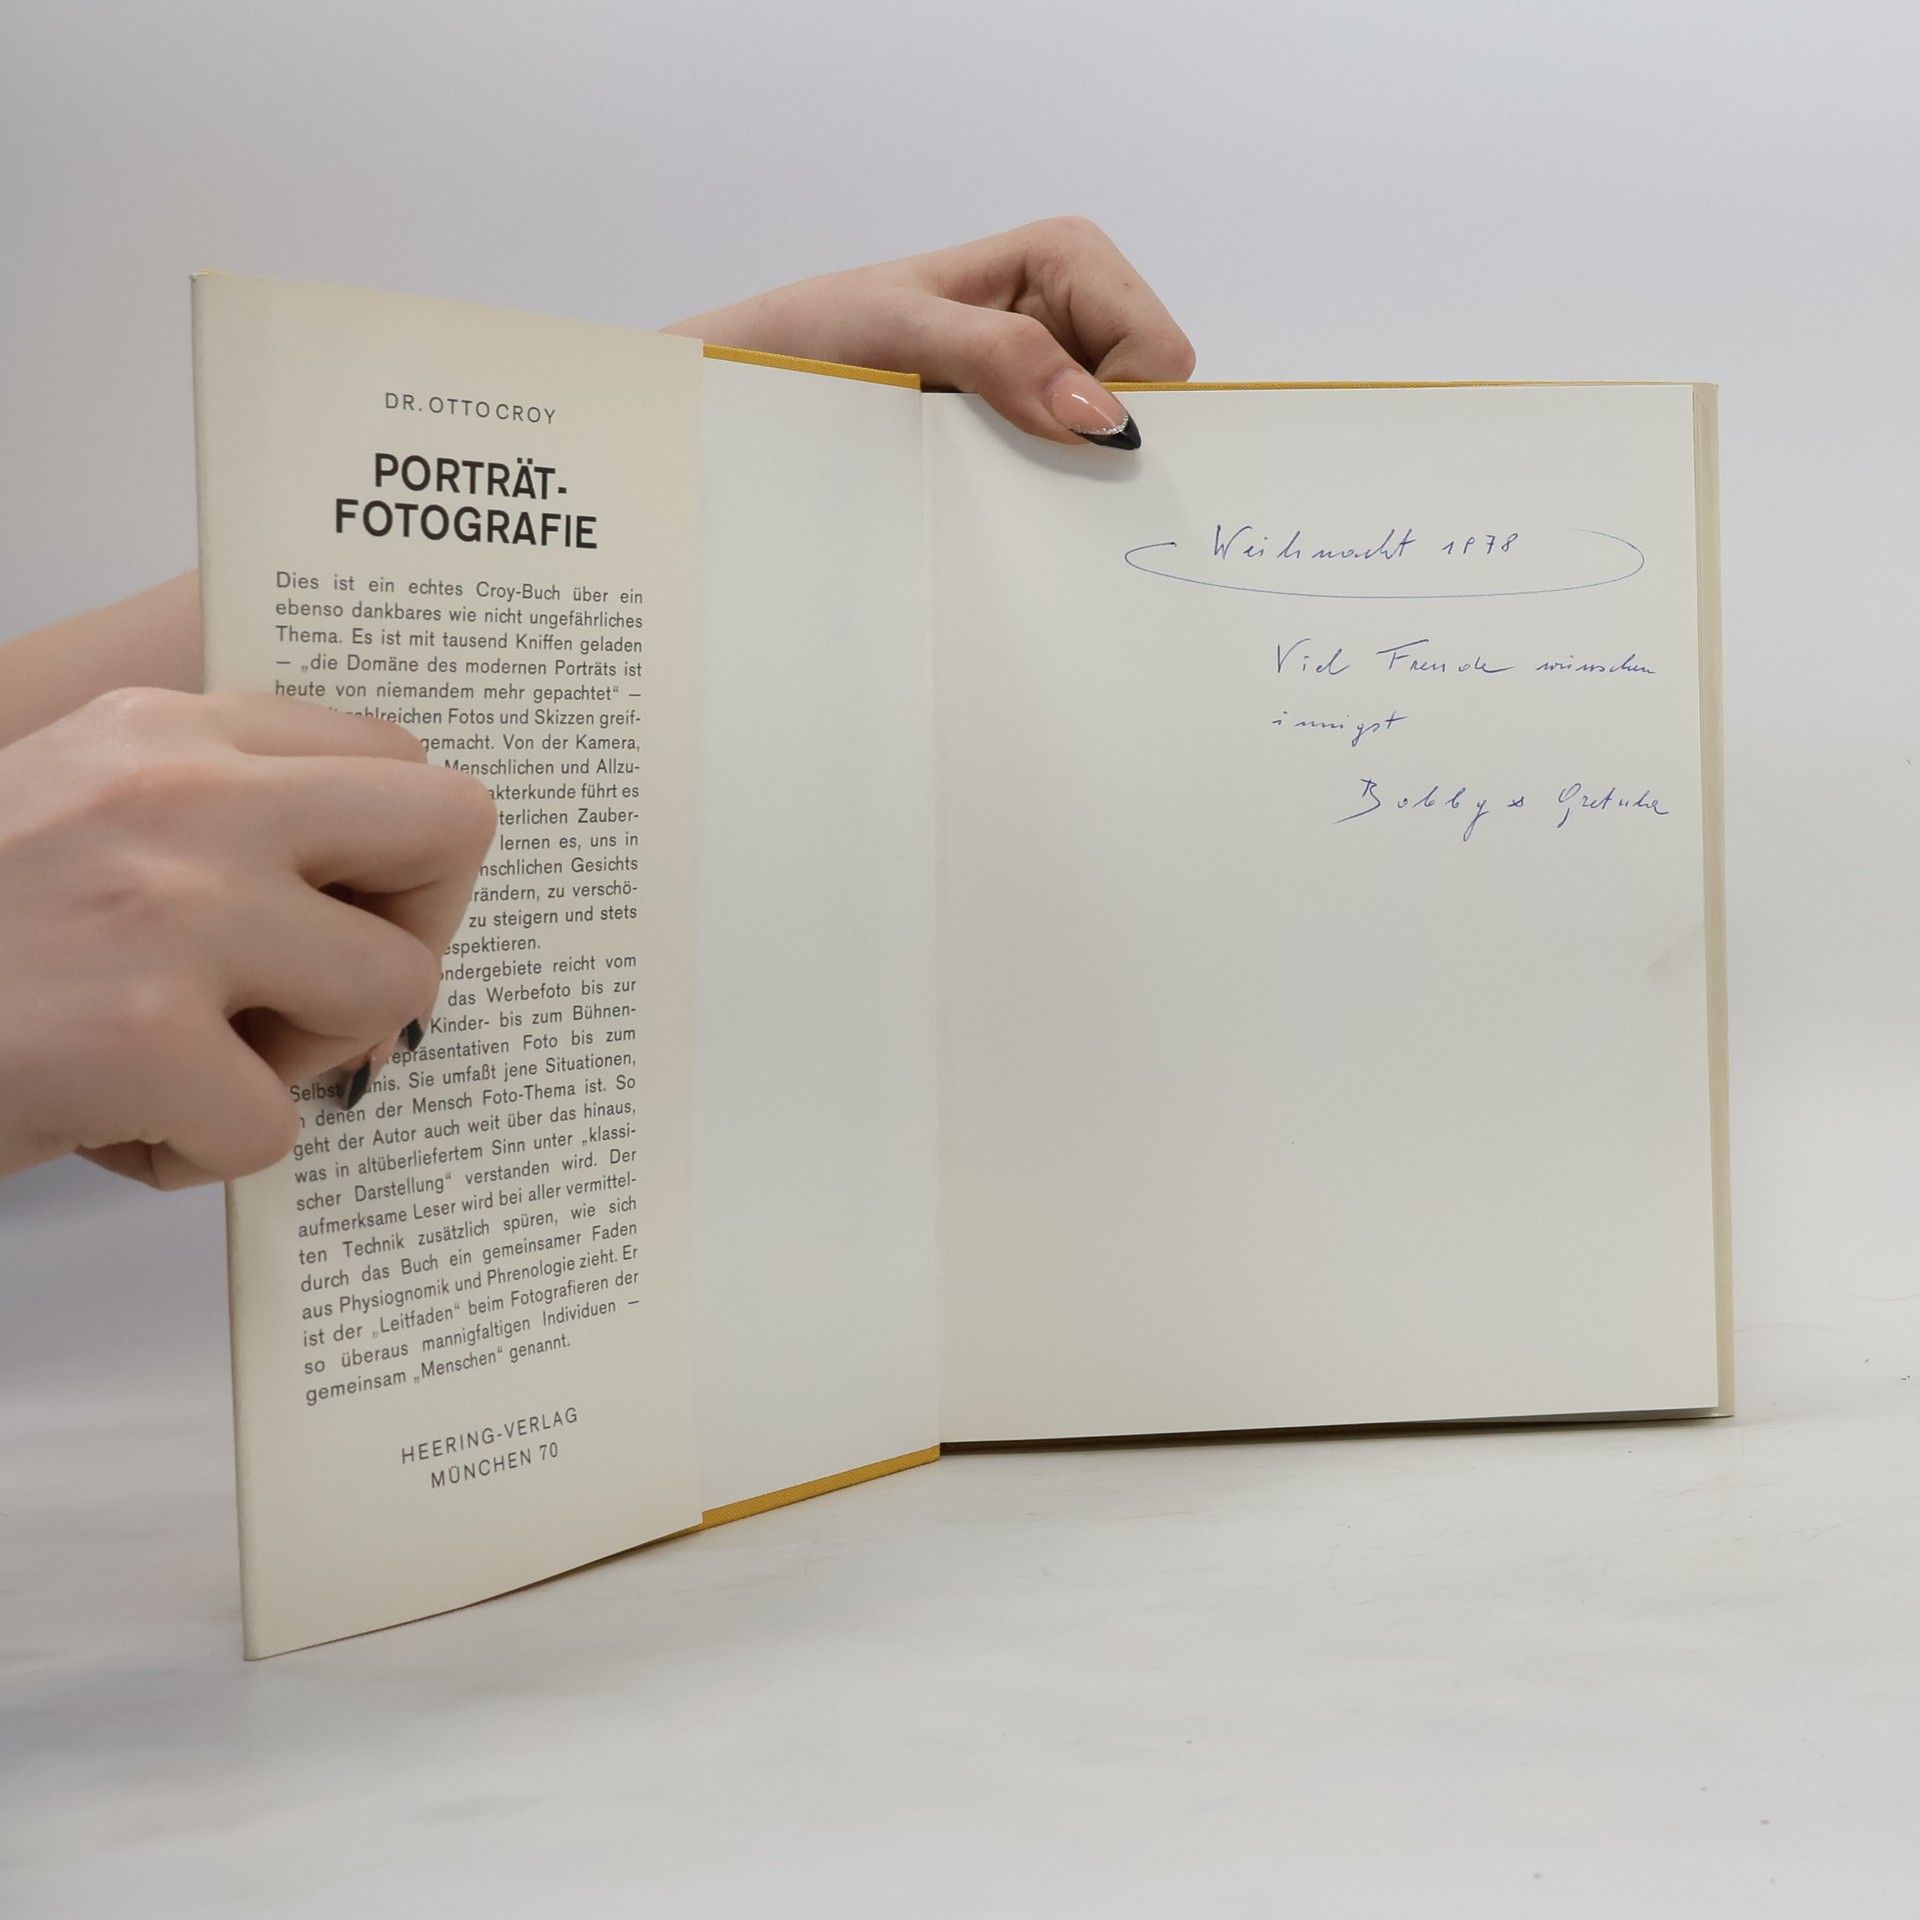 DR. OTTO CROY
PORTRÄT-
FOTOGRAFIE
Dies ist ein echtes Croy-Buch über ein
ebenso dankbares wie nicht ungefährliches
Thema. Es ist mit tausend Kniffen geladen
— „die Domäne des modernen Porträts ist
heute von niemandem mehr gepachtet“ —
Fotos und Skizzen greif-
gemacht. Von der Kamera,
Menschlichen und Allzu-
führt es
Zauber-
lernen es, uns in
Gesichts
zu verschö-
zu steigern und stets
reicht vom
das Werbefoto bis zur
Kinder- bis zum Bühnen-
Foto bis zum
Sie umfaßt jene Situationen,
denen der Mensch Foto-Thema ist. So
geht der Autor auch weit über das hinaus,
was in altüberliefertem Sinn unter „klassi-
scher Darstellung“ verstanden wird. Der
aufmerksame Leser wird bei aller vermittel-
ten Technik zusätzlich spüren, wie sich
durch das Buch ein gemeinsamer Faden
aus Physiognomik und Phrenologie zieht. Er
ist der „Leitfaden“ beim Fotografieren der
so überaus mannigfaltigen Individuen —
gemeinsam „Menschen“ genannt.
HEERING-VERLAG
MÜNCHEN 70
Weihnacht 1978
Viel Freude wünschen
innigst
Bobby &